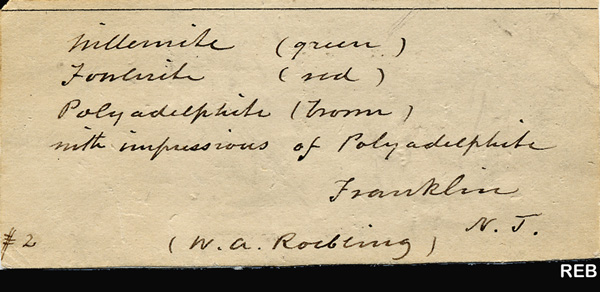 Willemite (green)
Fowlerite (red)
Polyadelphite (brown)
with impressions of Polyadelphite
Franklin
N. J.
#2 (W. A. Roebling)
REB